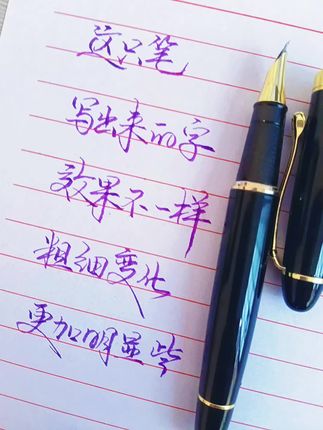 这只笔
写出来的字
效果不一样
粗细变化
更加明显些